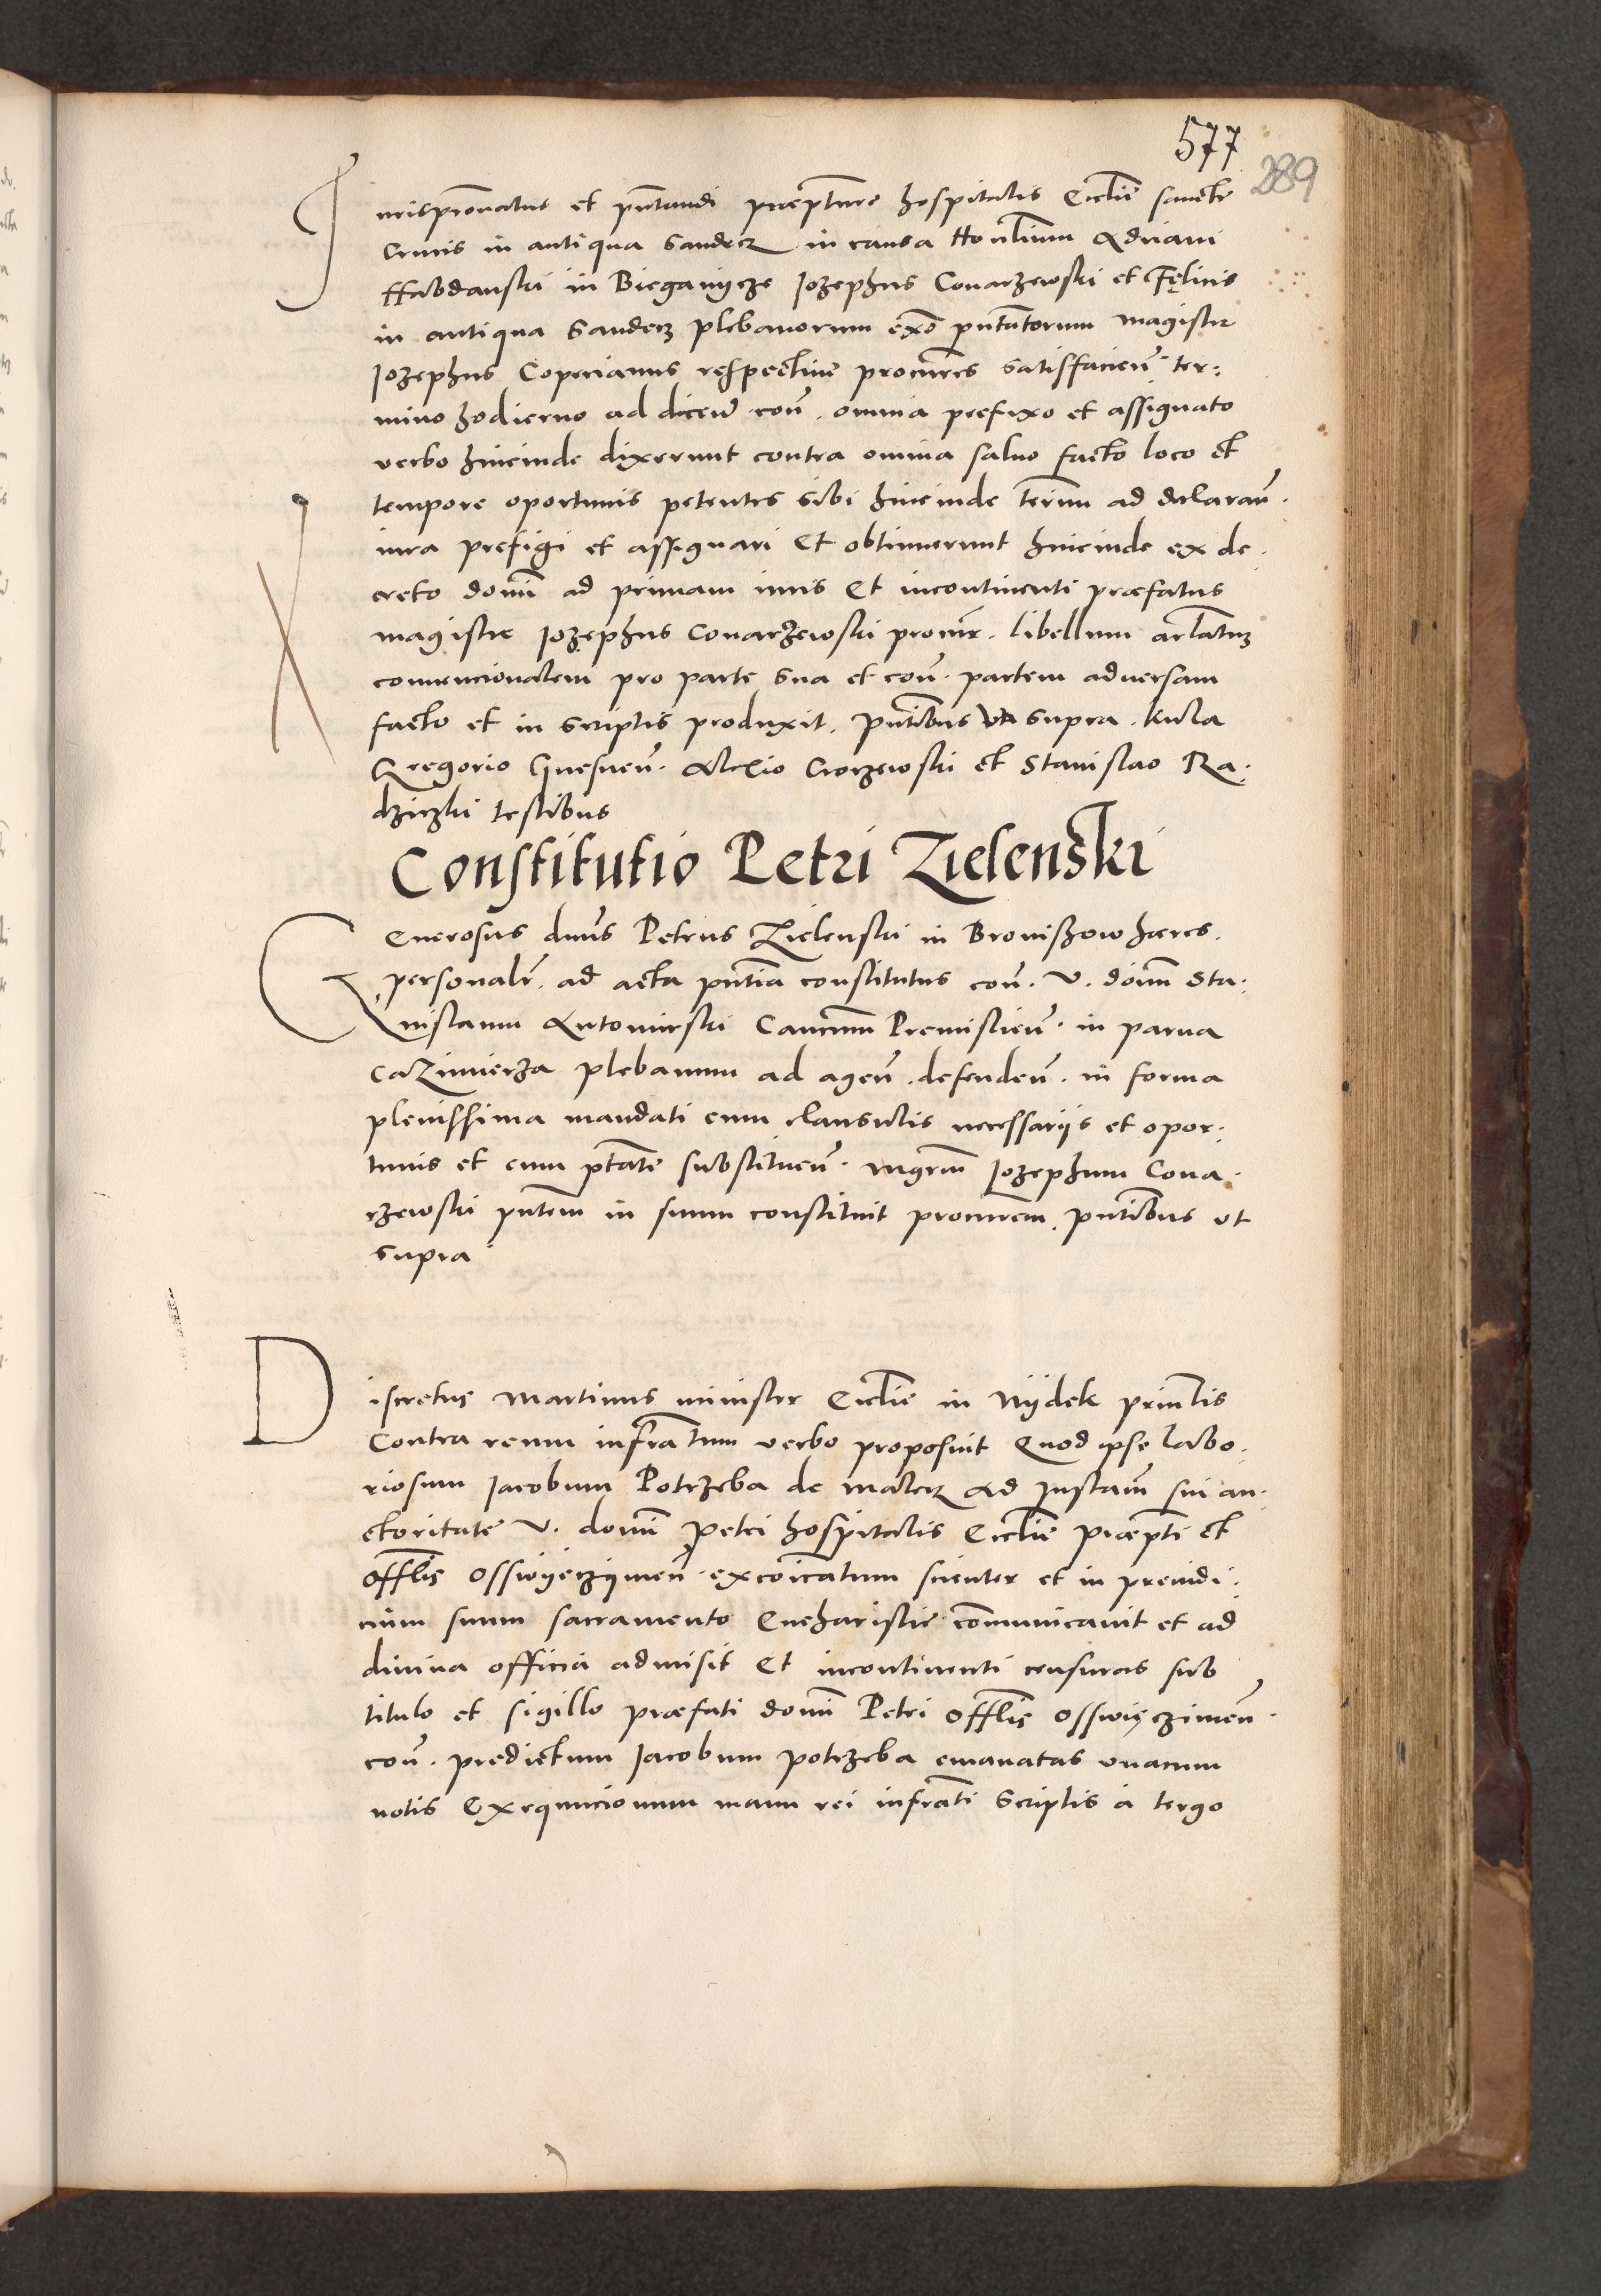 577
289
Jurispronatus et pntandi præpture hospitalis Ecclie sancte
Crucis in antiqua Sandecz in causa Honlium Adriani
Habdanski in Bieganycze Jozephus Conarzewski et Felicis
in antiqua Sandecz plebanorum expo pntatorum magister
Jozephus Coprianus respective procures satisfacien ter:
mino hodierno ad dicen con. omnia prefixo et assignato
verbo hincinde dixerunt contra omnia salvo facto loco et
tempore oportunis petentes sibi hincinde termin ad declaran.
iura prefigi et assignari Et obtinuerunt hincinde ex de.
creto domini ad primam iuris Et incontinenti præfatus
magister Jozephus Conarzewski procur. libellum arlatum
convencionalem pro parte sua et con. partem adversam
facto et in scriptis produxit. pntibus ut supra. Kula
Gregorio Gnesnen. Alexio Crorzewski et Stanislao Ra.
dziczki testibus
Constitutio Petri Zielenski
Generosus dnus Petrus Zielenski in Broniszow hæres.
personalr. ad acta pntia constitutus con. V. domin Sta.
nislaum Lutomirski Cancrum Premislien. in parva
Cazimierza plebanum ad agen. defenden. in forma
plenissima mandati cum clausulis necessariis et opor.
tunis et cum ptate substituen. Mgrum Jozephum Cona.
rzewski pntem in suum constituit procurem. pntibus ut
supra
Discretus Martinus minister Ecclie in Nydek printlis
Contra reum infratum verbo proposuit Quod ipse labo.
riosum Jacobum Potrzeba de Malecz ad Instam sui au.
ctoritate V. domini Petri hospitalis Ecclie præpti et
offlis Osswyeczymen. excoicatum scienter et in preiudi.
cium suum sacramento Eucharistie communicavit et ad
divina officia admisit Et incontinenti censuras sub
titulo et sigillo præfati domini Petri offlis Osswięczimen.
con. predictum Jacobum potrzeba emanatas unacum
notis Exequucionum manu rei infrati scriptis a tergo